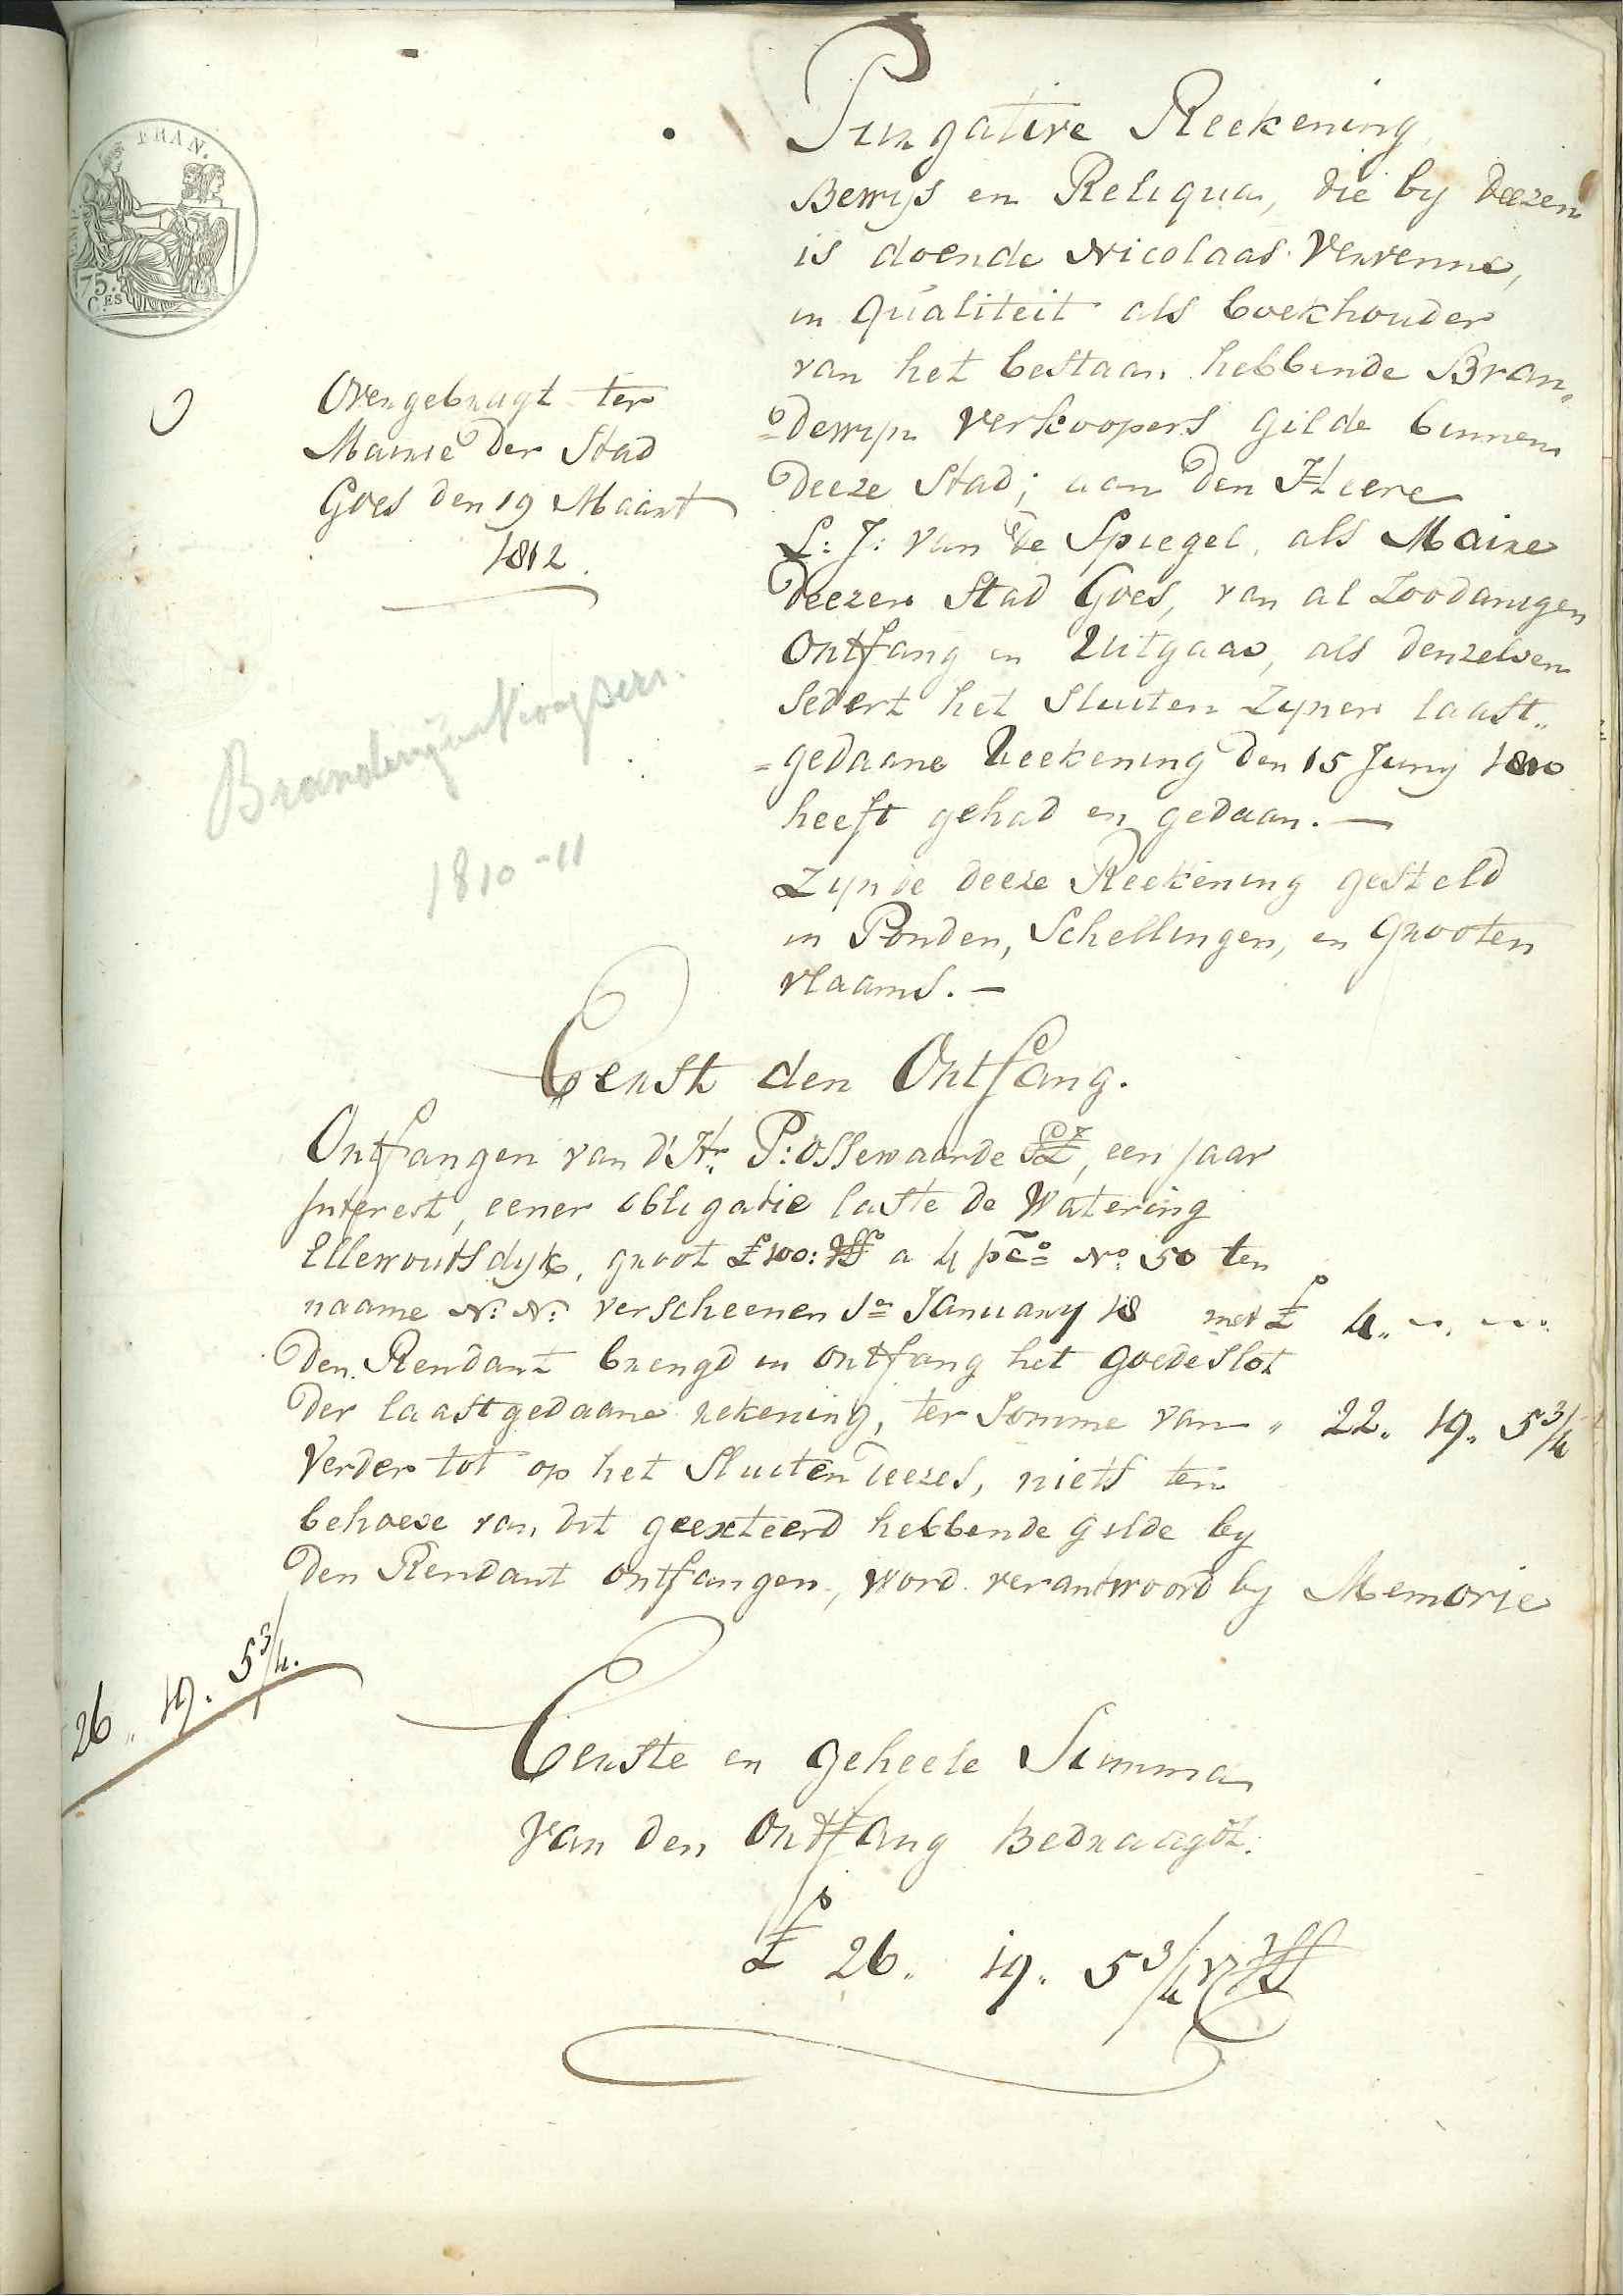 Purgative Reekening
Bewys en Reliqua, die by deezen
is doende Nicolaas Ververme,
in qualiteit als boekhouder
van het bestaan hebbende Bran„
=dewyn verkoopers gilde binnen
deeze Stad; aan den Heere
L: J: van de Spiegel, als Maire
deezer Stad Goes, van al zoodanigen
Ontfang en Uitgaav, als denzelven
sedert het sluiten zyner laast„
=gedaane Reekening den 15 Juny 1810
heeft gehad en gedaan. —
Zynde deeze Reekening gesteld
in Ponden, Schellingen, en Grooten
vlaams. —
FRAN.
75.
C.ES
Overgebragt ter
Mairie der Stad
Goes den 19 Maart
1812.
Brandewijnverkoopers.
1810-11
Eerst den Ontfang.
Ontfangen van d'Hr. P: Ossewaarde, een jaar
Interest, eener obligatie laste de Watering
Ellewoutsdyk, groot £ 100: a 4 pco No. 50 ten
naame N: N: verscheenen 1o January 18 met £ 4„ -„ -„
Den Rendant brengd in ontfang het goede slot
der laastgedaane rekening, ter somme van „ 22„ 19„ 5 3/4
Verder tot op het sluiten deezes, niets ten
behoeve van dit geexteerd hebbende gilde by
den Rendant ontfangen, word verantwoord by Memorie
26„ 19„ 5 3/4.
Eerste en geheele Summa
van den Ontfang Bedraagdt:
£ 26„ 19„ 5 3/4